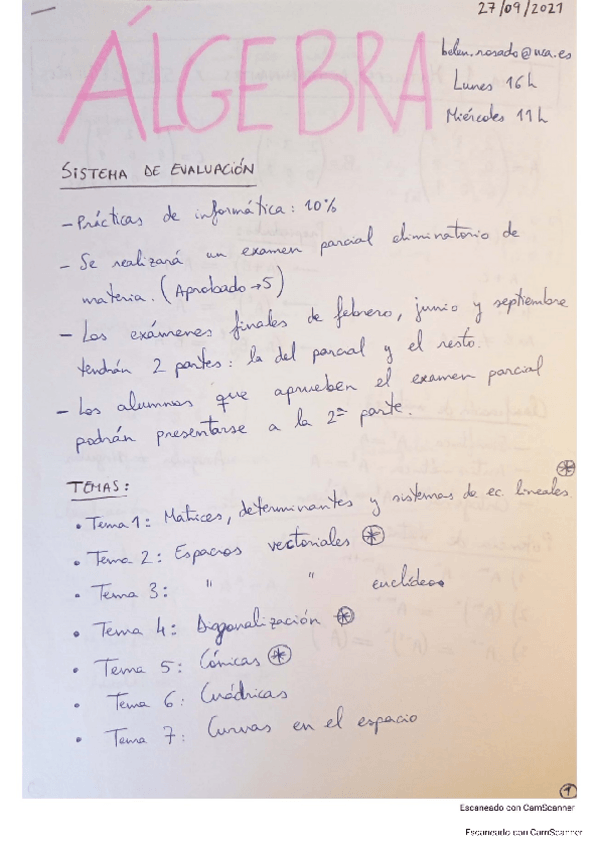 27/09/2021
ÁLGEBRA
belen.rosado@uca.es
Lunes 16h
Miércoles 11h
SISTEMA DE EVALUACIÓN
- Prácticas de informática: 10%
- Se realizará un examen parcial eliminatorio de
materia. (Aprobado → 5)
- Los exámenes finales de febrero, junio y septiembre
tendrán 2 partes: la del parcial y el resto.
- Los alumnos que aprueben el examen parcial
podrán presentarse a la 2ª parte.
TEMAS:
• Tema 1: Matrices, determinantes y sistemas de ec. lineales. *
• Tema 2: Espacios vectoriales *
• Tema 3: " " euclídeos
• Tema 4: Diagonalización *
• Tema 5: Cónicas *
• Tema 6: Cuádricas
• Tema 7: Curvas en el espacio
1
Escaneado con CamScanner
Escaneado con CamScanner